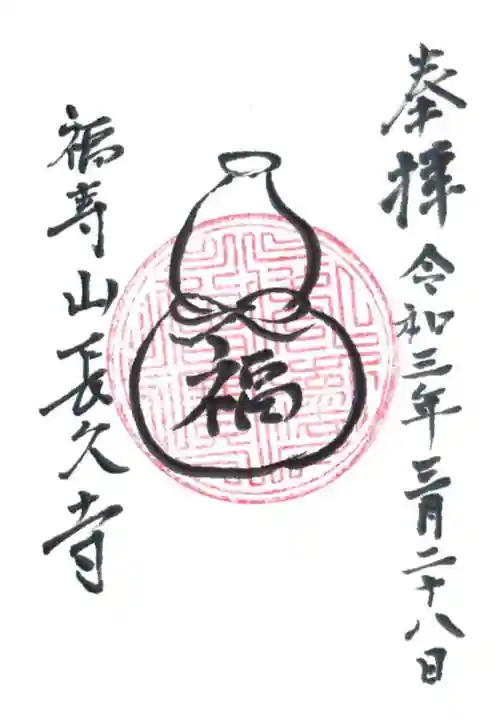 奉拝
令和三年三月二十八日
福
福寿山長久寺